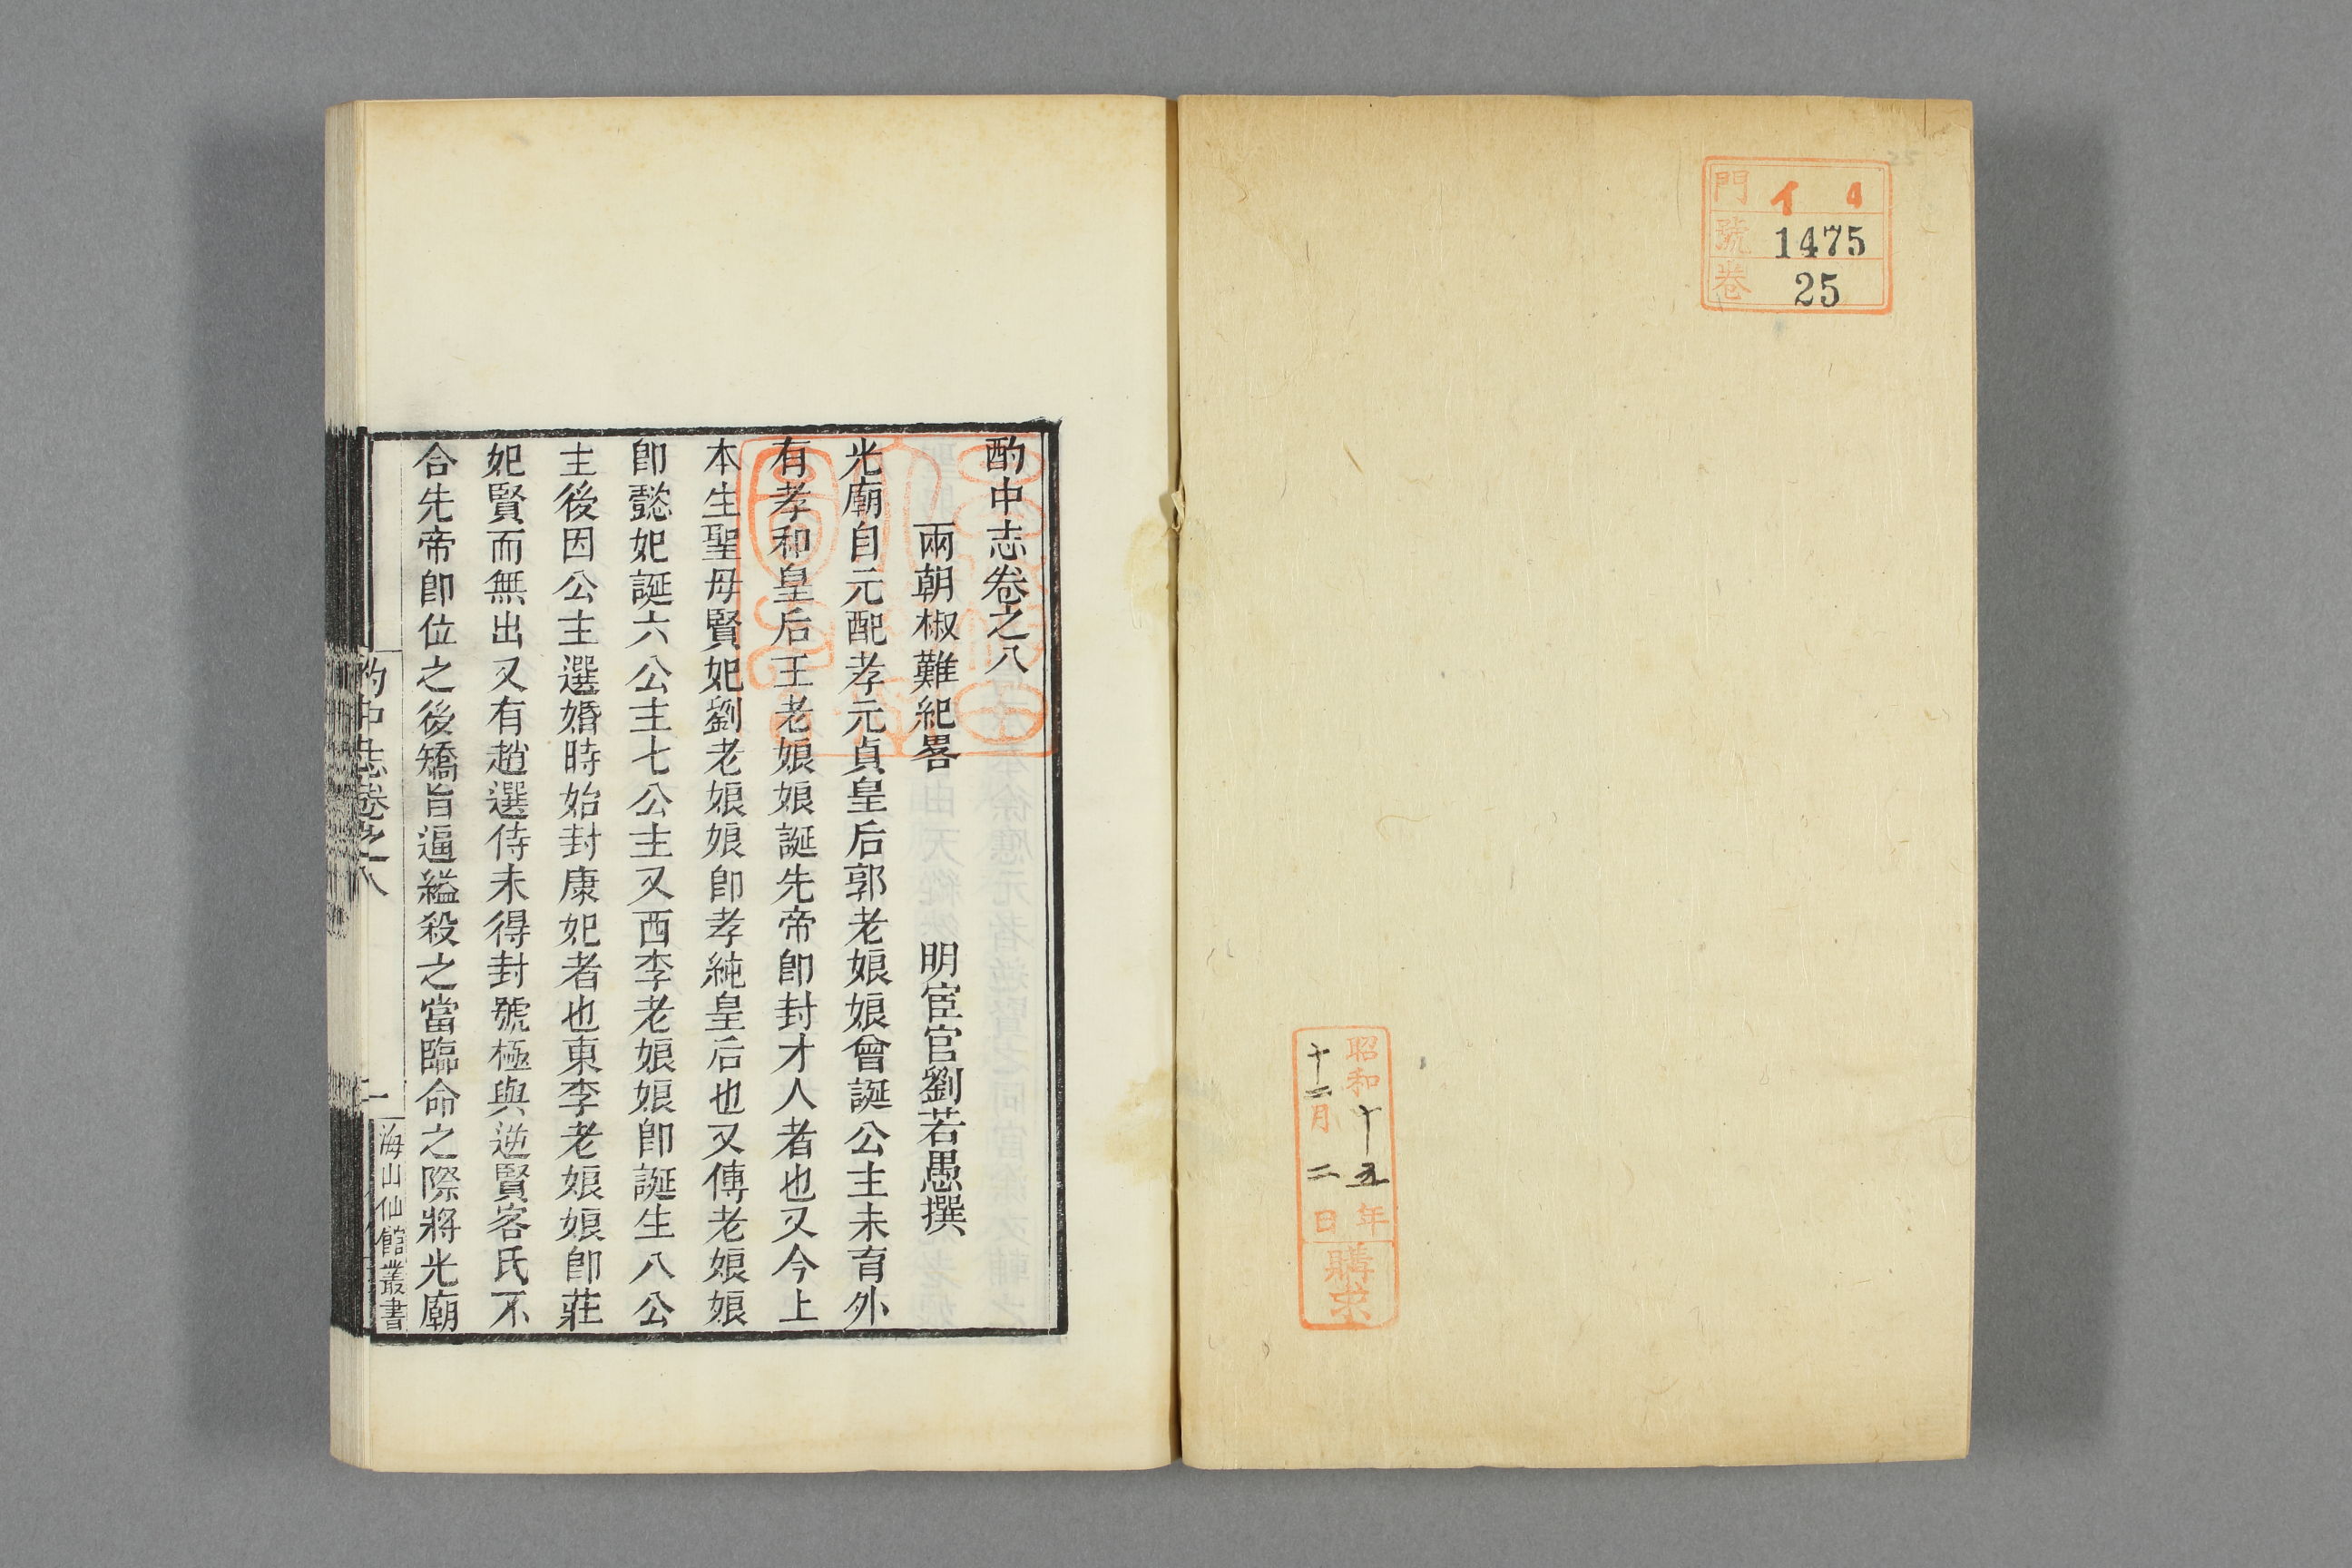 門 イ 4
號 1475
卷 25
昭和十五年
十二月二日
購求
酌中志卷之八
明宦官劉若愚撰
兩朝椒難紀畧
光廟自元配孝元貞皇后郭老娘娘曾誕公主未育外
有孝和皇后王老娘娘誕先帝卽封才人者也又今上
本生聖母賢妃劉老娘娘卽孝純皇后也又傳老娘娘
卽懿妃誕六公主七公主又西李老娘娘卽誕生八公
主後因公主選婚時始封康妃者也東李老娘娘卽莊
妃賢而無出又有趙選侍未得封號極與逆賢客氏不
合先帝卽位之後矯旨逼縊殺之當臨命之際將光廟
酌中志卷之八
一
海山仙館叢書